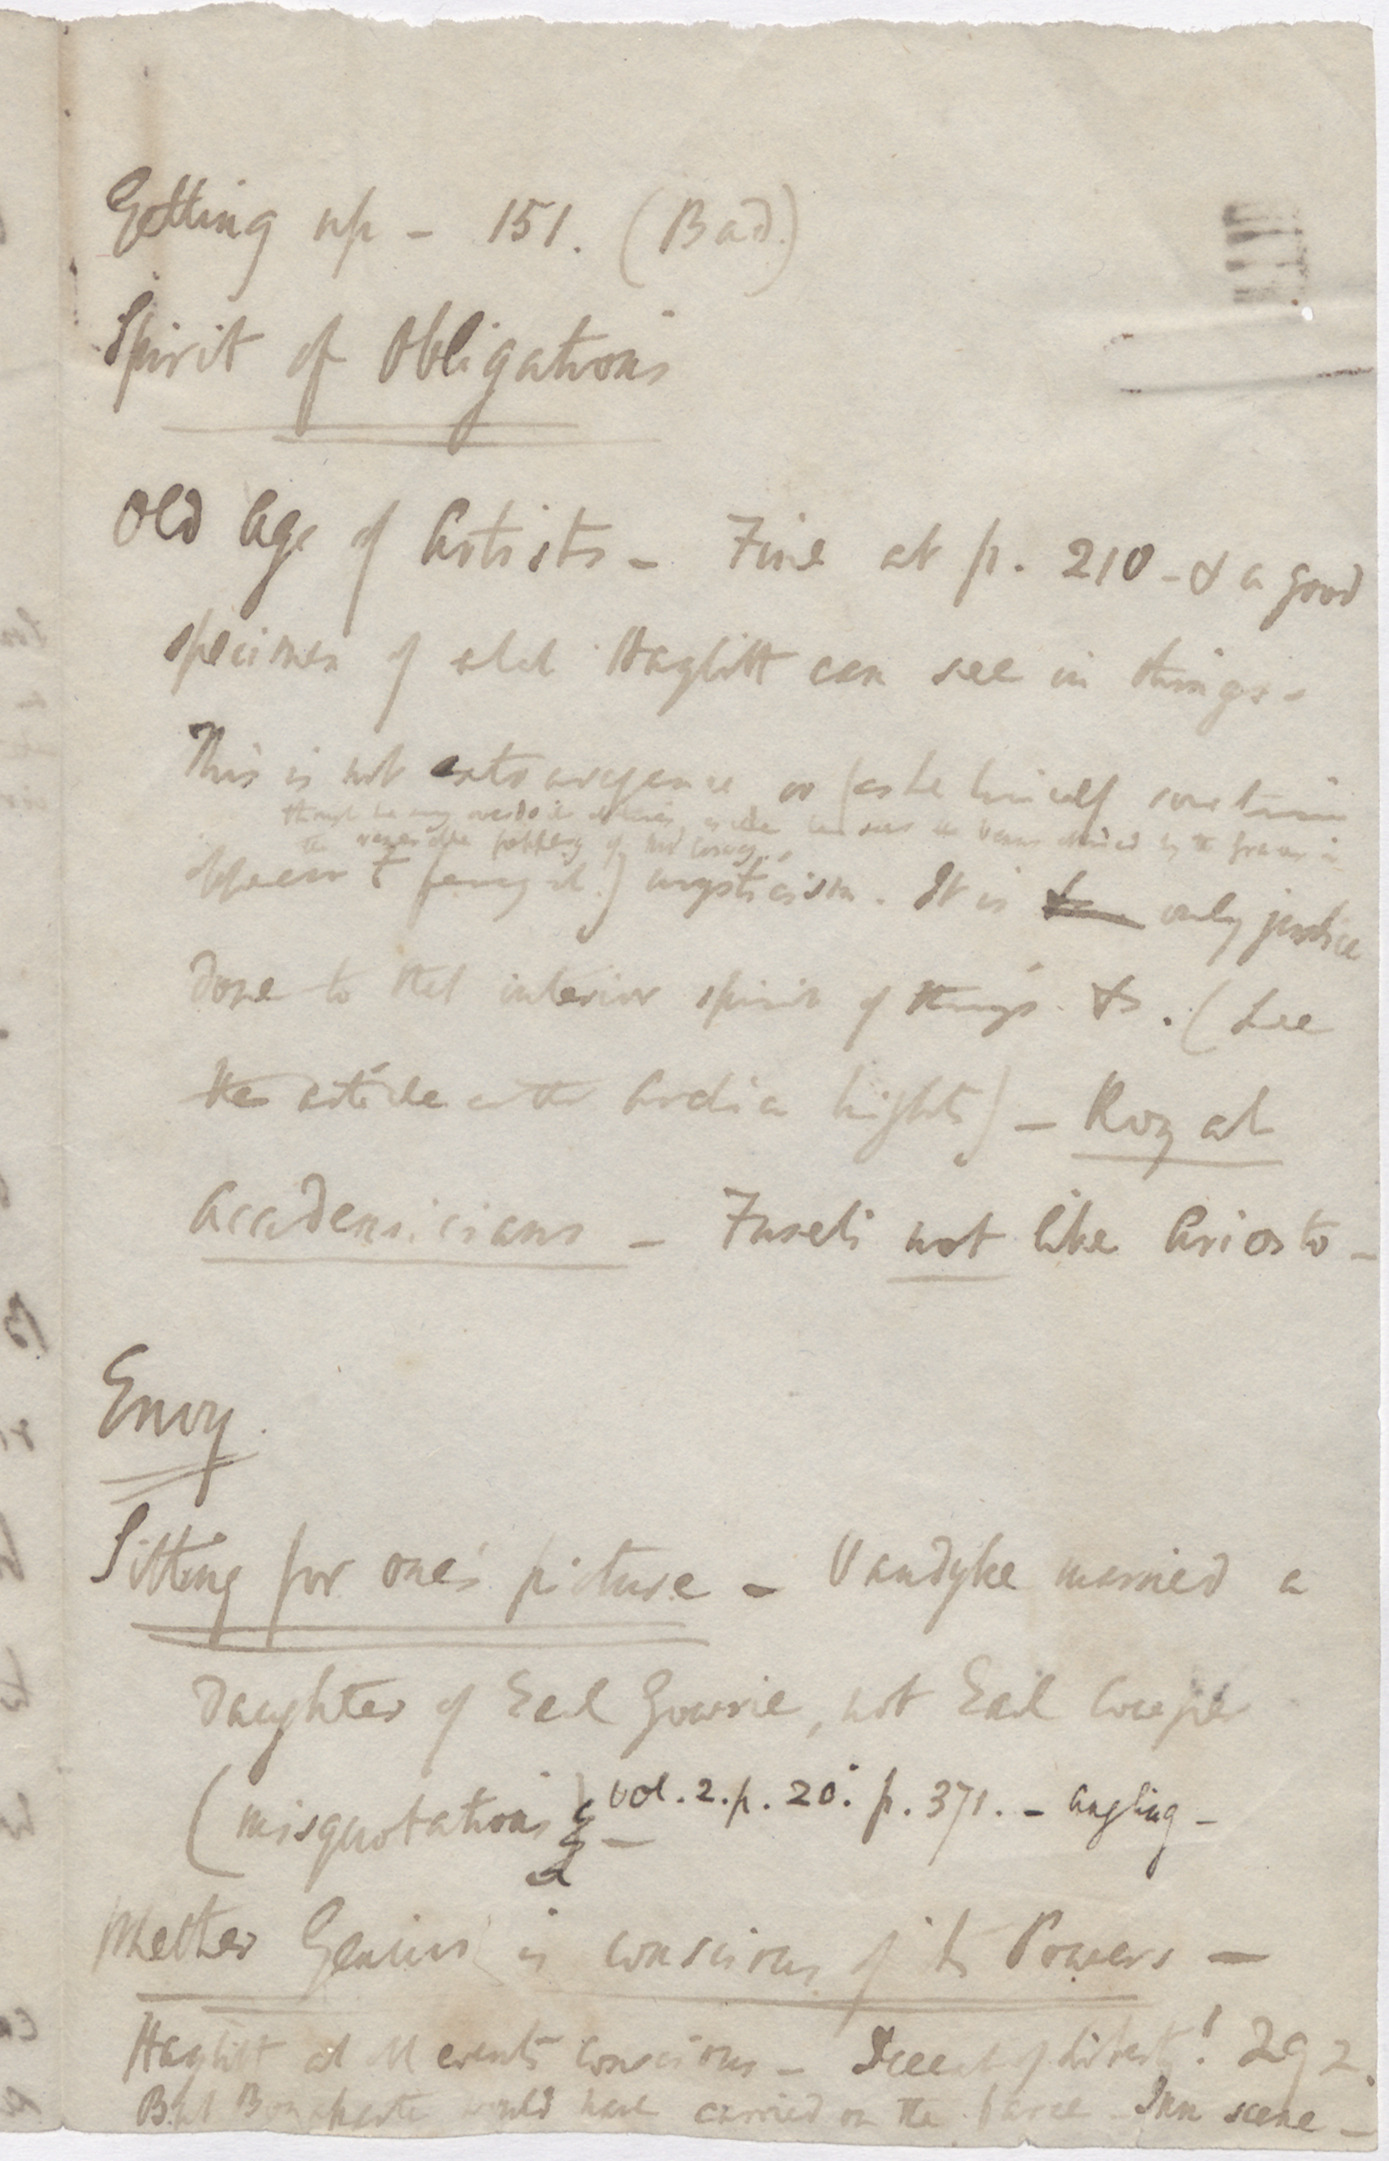 Getting up - 151. (Bad.)
Spirit of Obligations
Old Age of Artists - Fine at p. 210 - & a good
specimen of what Hazlitt can see in things.
This is not extravagance or (as he himself sometimes
though he may in he sees the by the grace in
the venerable foppery of Mr Cosway.
appears to fancy it) mysticism. It is only justice
done to the interior spirit of things &c. (See
the article on the Arolia lights) - Royal
Accademicians - Fuseli not like Ariosto -
Envy.
Sitting for one's picture - Vandyke married a
Daughter of Earl Gowrie, not Earl Cowper
(misquotations) vol. 2. p. 20. p. 371. - angling -
Whether Genius is conscious of its Powers -
Hazlitt at all events conscious - Scent of liberty! 292.
But Bonaparte would have carried on the farce - Inn scene -